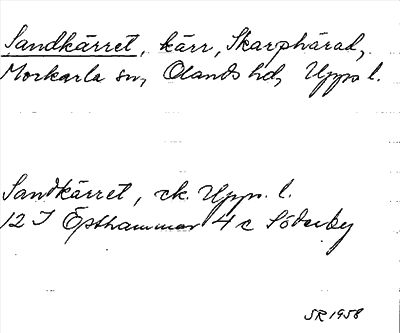 Sandkärret, kärr, Skarphärad,
Morkarla sn, Olands hd, Upps l.
Sandkärret, ek. Upps. l.
12 I Östhammar 4 c Söderby
SR 1958